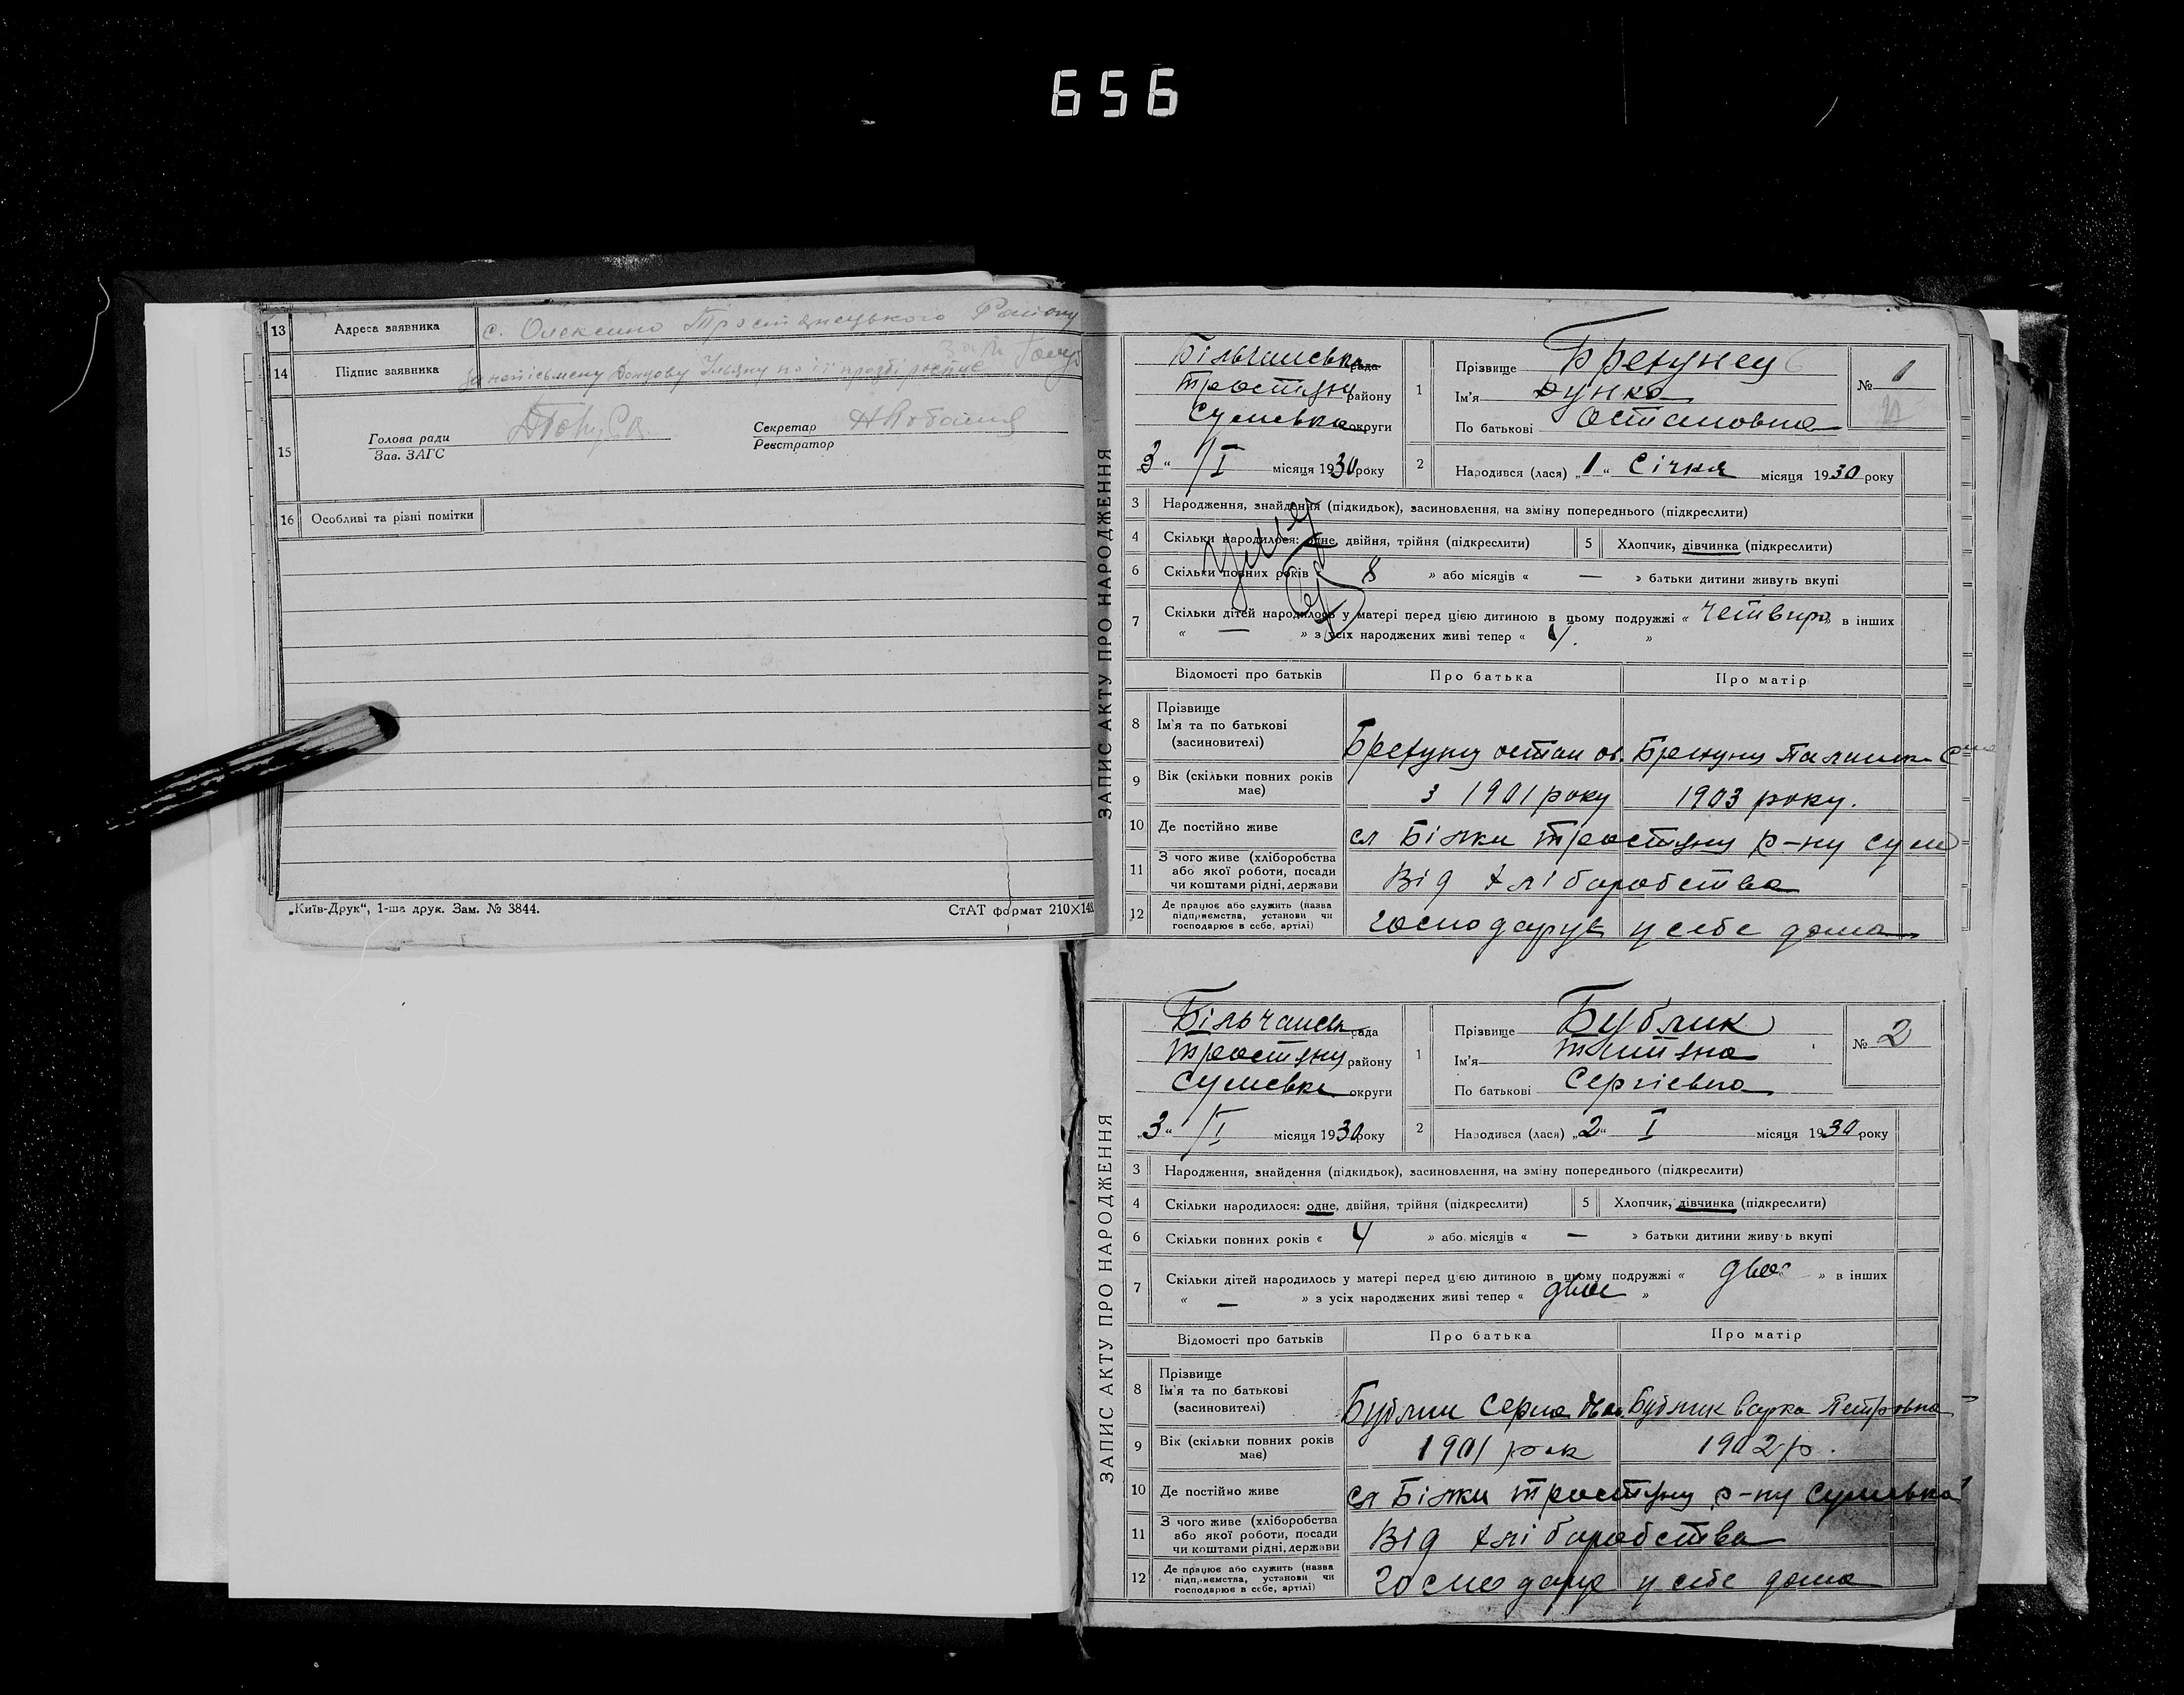 656
13 Адреса заявника с. Олексино Тростянецького Району
14 Підпис заявника
15 Голова ради
Зав. ЗАГС
Секретар
Реєстратор
16 Особливі та різні помітки
„Київ-Друк“, 1-ша друк. Зам. № 3844. СтАТ формат 210×148
ЗАПИС АКТУ ПРО НАРОДЖЕННЯ
рада
району
округи
„3“ I місяця 1930 року
1 Прізвище
Ім'я
По батькові Остаповна
№ 1
2 Народився (лася) „1“ Січня місяця 1930 року
3 Народження, знайдення (підкидьок), засиновлення, на зміну попереднього (підкреслити)
4 Скільки народилося: одне, двійня, трійня (підкреслити) 5 Хлопчик, дівчинка (підкреслити)
6 Скільки повних років « 8 » або місяців « — » батьки дитини живуть вкупі
7 Скільки дітей народилось у матері перед цією дитиною в цьому подружжі « четверо » в інших
« — » з усіх народжених живі тепер « 4. »
Відомості про батьків Про батька Про матір
8 Прізвище
Ім'я та по батькові
(засиновителі)
9 Вік (скільки повних років має) з 1901 року 1903 року.
10 Де постійно живе сл Білки Тростянц р-ну
11 З чого живе (хліборобства або якої роботи, посади чи коштами рідні, держави Від хліборобства
12 Де працює або служить (назва підприємства, установи чи господарює в себе, артілі) у себе дома
ЗАПИС АКТУ ПРО НАРОДЖЕННЯ
Більчанськ рада
Тростянц району
округи
„3“ I місяця 1930 року
1 Прізвище Бублик
Ім'я
По батькові Сергіевна
№ 2
2 Народився (лася) „2“ I місяця 1930 року
3 Народження, знайдення (підкидьок), засиновлення, на зміну попереднього (підкреслити)
4 Скільки народилося: одне, двійня, трійня (підкреслити) 5 Хлопчик, дівчинка (підкреслити)
6 Скільки повних років « 4 » або місяців « — » батьки дитини живуть вкупі
7 Скільки дітей народилось у матері перед цією дитиною в цьому подружжі « двое » в інших
« — » з усіх народжених живі тепер « двое »
Відомості про батьків Про батька Про матір
8 Прізвище
Ім'я та по батькові
(засиновителі) Бублик Варка Петровна
9 Вік (скільки повних років має) 1901 рок 1902 р.
10 Де постійно живе сл Білки Тростянц р-ну
11 З чого живе (хліборобства або якої роботи, посади чи коштами рідні, держави Від хліборобства
12 Де працює або служить (назва підприємства, установи чи господарює в себе, артілі) у себе дома